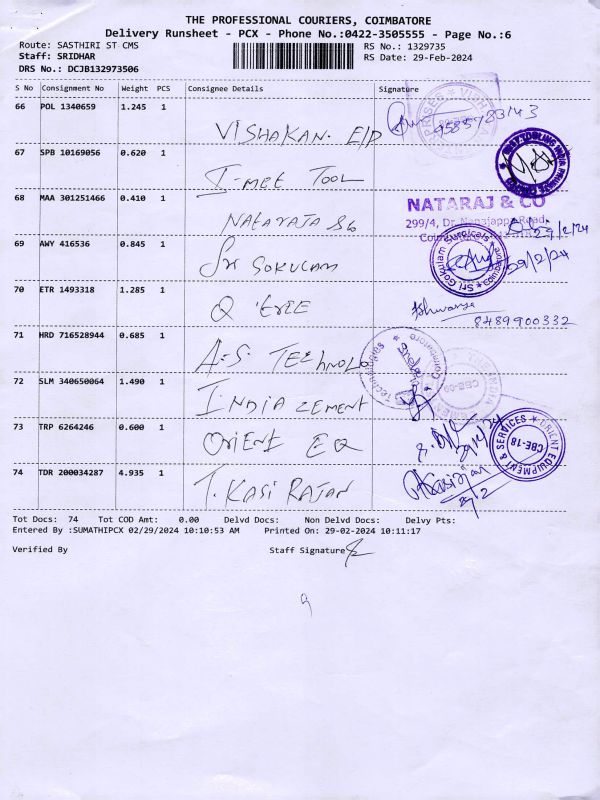 THE PROFESSIONAL COURIERS, COIMBATORE
Delivery Runsheet - PCX - Phone No.:0422-3505555 - Page No.:6
Route: SASTHIRI ST CMS
RS No.: 1329735
Staff: SRIDHAR
RS Date: 29-Feb-2024
DRS No.: DCJB132973506
S No Consignment No Weight PCS Consignee Details Signature
66 POL 1340659 1.245 1
VISHAKAN. E/P
9585783143
67 SPB 10169056 0.620 1
I-MEE TOOL
68 MAA 301251466 0.410 1
NATARAJA &Co
NATARAJ & CO
299/4, Dr. Nanjappa Road,
29/2/24
69 AWY 416536 0.845 1
Sri GOKULAM
Sri Gokulam Surgicals
Coimbatore
29/2/24
70 ETR 1493318 1.285 1
Q TREE
Ishwarya
8489900332
71 HRD 716528944 0.685 1
A-S. TECHNOLO
Technologies
Coimbatore
72 SLM 340650064 1.490 1
INDIA CEMENT
CBE-09
73 TRP 6264246 0.600 1
ORIENT EQ
ORIENT EQUIPMENT & SERVICES
CBE-18
74 TDR 200034287 4.935 1
T. KASI RAJAN
Tot Docs: 74 Tot COD Amt: 0.00 Delvd Docs: Non Delvd Docs: Delvy Pts:
Entered By :SUMATHIPCX 02/29/2024 10:10:53 AM Printed On: 29-02-2024 10:11:17
Verified By Staff Signature
9